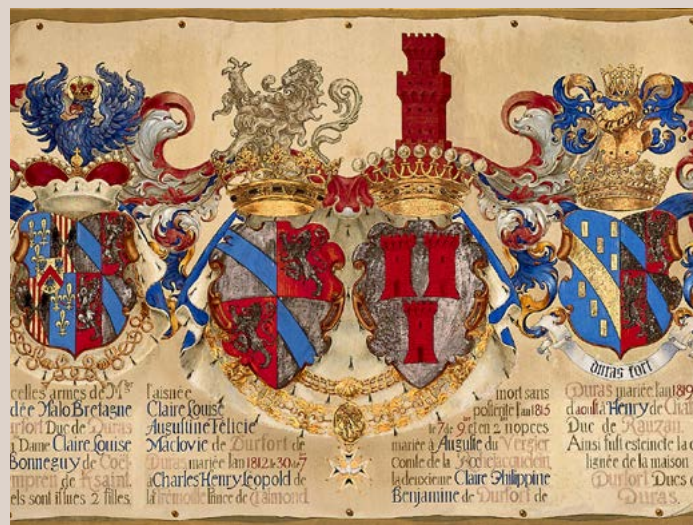 duras fort
celles armes de M
dée Malo Bretagne
urfort Duc de Duras
Dame Claire Louise
Bonneguy de Coët
mpren de Ksaint
els sont issues 2 filles.
l'aisnée
Claire Louise
Augustine Félicie
Maclovie de Durfort de
Duras mariée l'an 1812 le 30 de 7
à Charles Henry Léopold de
la Trémoille Prince de Talmond
mort sans
postérité l'an 1815
le 7 de 9 et en 2 nopces
mariée à Auguste du Vergier
Comte de la Rochejacquelein
la deuxième Claire Philippine
Benjamine de Durfort de
Duras mariée l'an 1819
d'aoust à Henry de Cha
Duc de Rauzan.
Ainsi fust esteincte la
lignée de la maison
Durfort Ducs
Duras.